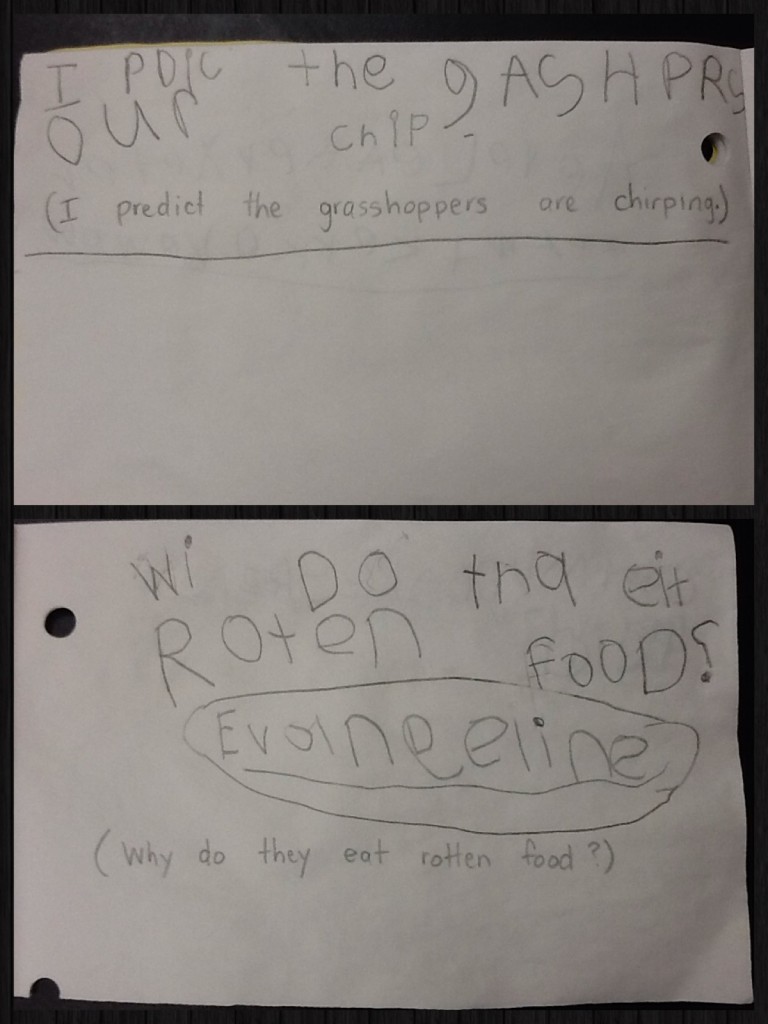 I PDIC the gASHPRS
OUR chiP.
(I predict the grasshoppers are chirping.)
Wi DO tha eit
ROten fOOD?
Evangeline
(Why do they eat rotten food?)